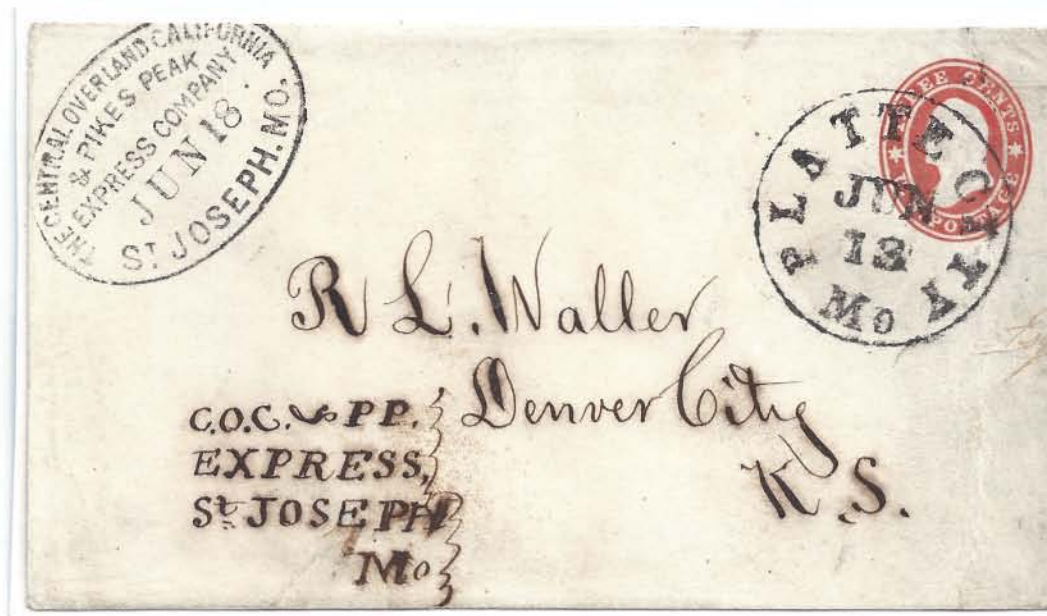 THE CENTRAL OVERLAND CALIFORNIA
& PIKES PEAK
EXPRESS COMPANY
JUN 18
ST JOSEPH. MO.
THREE CENTS
PLATTE CITY
JUN
13
Mo
R L. Waller
Denver City
K.S.
C.O.C. & PP.
EXPRESS,
St. JOSEPH
Mo